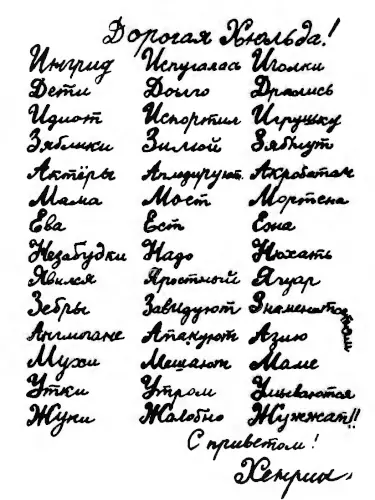 Дорогая Хюльда!
Ингрид Испугалась Иголки
Дети Долго Дрались
Идиот Испортил Игрушку
Зяблики Зимой Зябнут
Актёры Аплодируют Акробатам
Мама Моет Мортена
Ева Ест Ежа
Незабудки Надо Нюхать
Явился Яростный Ягуар
Зебры Завидуют Знаменитостям
Англичане Атакуют Азию
Мухи Мешают Маме
Утки Утром Умываются
Жуки Жалобно Жужжат!!
С приветом!
Хенрик.